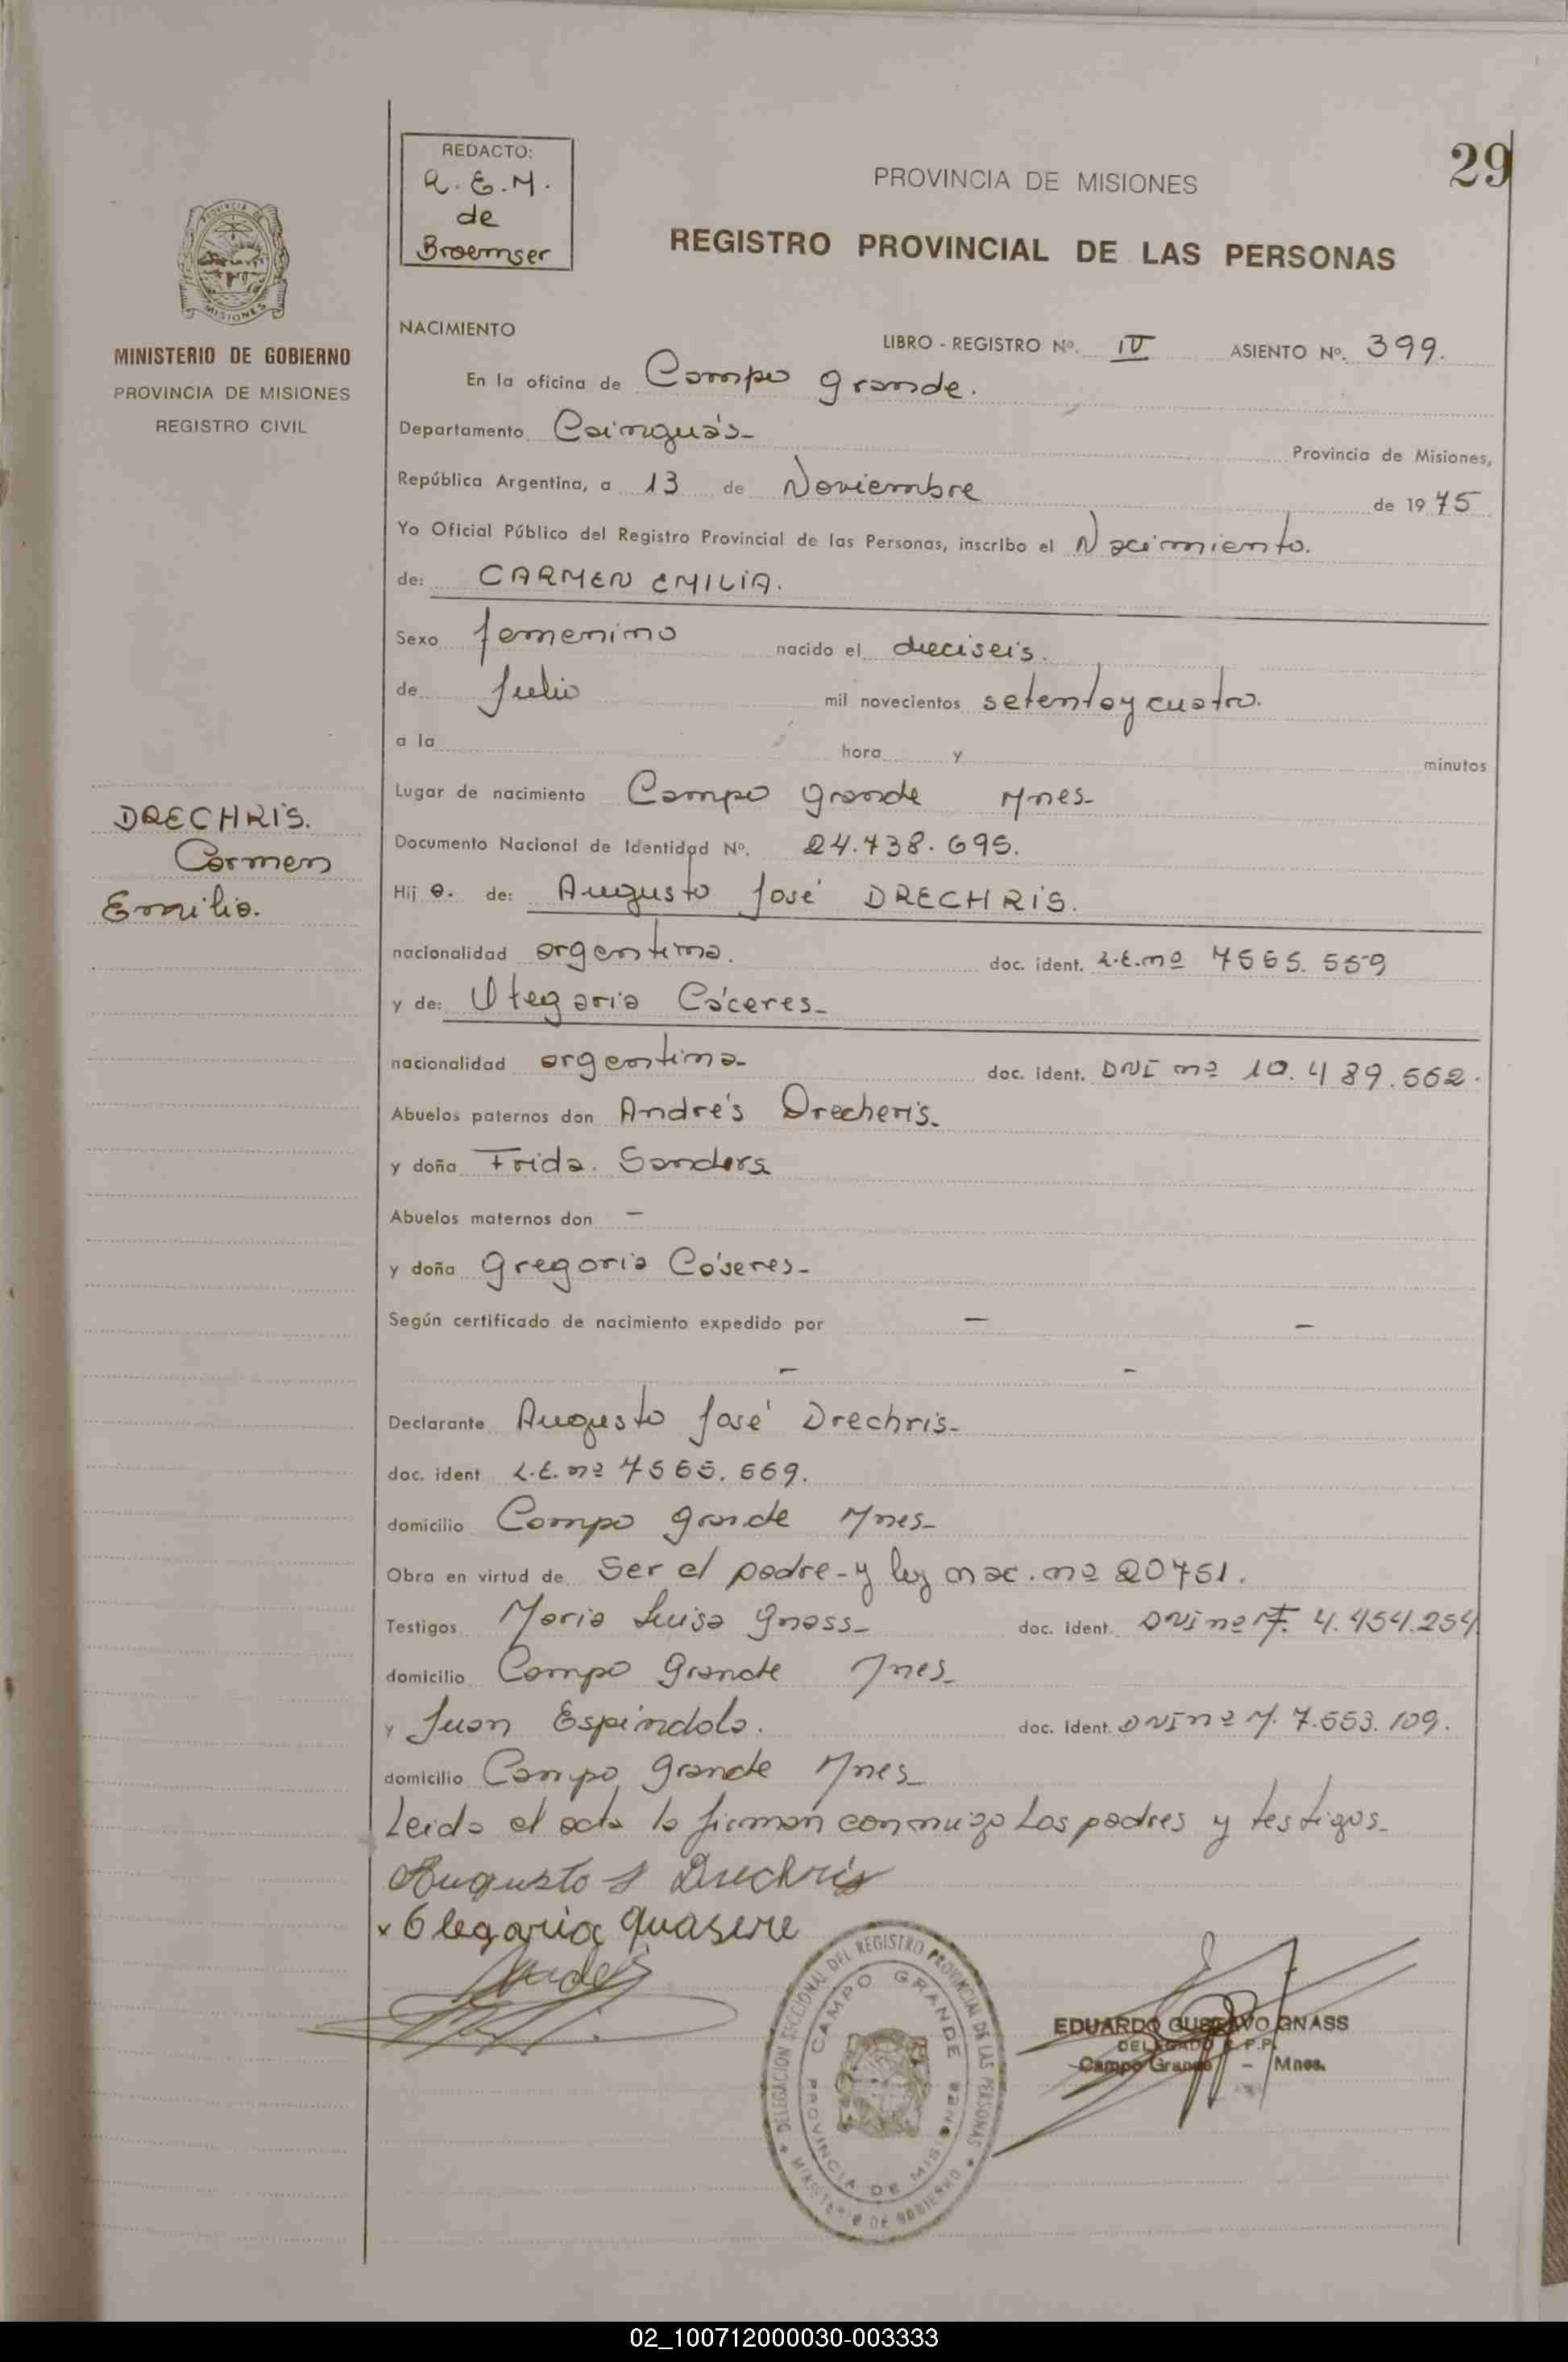 REDACTO:
R.E.M.
de
Broemser
29
PROVINCIA DE MISIONES
REGISTRO PROVINCIAL DE LAS PERSONAS
PROVINCIA DE
MISIONES
MINISTERIO DE GOBIERNO
PROVINCIA DE MISIONES
REGISTRO CIVIL
NACIMIENTO
LIBRO - REGISTRO Nº. IV ASIENTO Nº. 399.
En la oficina de Campo Grande.
Departamento Cainguás-
Provincia de Misiones,
República Argentina, a 13 de Noviembre de 1975
Yo Oficial Público del Registro Provincial de las Personas, inscribo el Nacimiento.
de: CARMEN EMILIA.
Sexo femenino nacido el dieciseis.
de Julio mil novecientos setenta y cuatro.
a la hora y minutos
Lugar de nacimiento Campo Grande Mnes-
DRECHRIS.
Carmen
Emilia.
Documento Nacional de Identidad Nº. 24.738.695.
Hij a. de: Augusto José DRECHRIS.
nacionalidad argentina. doc. ident. L.E.nº 7565.559
y de: Olegaria Cáceres-
nacionalidad argentina- doc. ident. DNI nº 10.489.562.
Abuelos paternos don Andrés Drecheris-
y doña Frida. Sanders
Abuelos maternos don -
y doña Gregoria Cáseres-
Según certificado de nacimiento expedido por - -
- -
Declarante Augusto José Drechris-
doc. ident L.E. nº 7565.559.
domicilio Campo Grande Mnes-
Obra en virtud de Ser el padre-y ley nac. nº 20751.
Testigos Maria Luisa Gnass- doc. Ident. DNI nº F. 4.454.254
domicilio Campo Grande Mnes-
y Juan Espíndola. doc. Ident. DNI nº M. 7.553.109.
domicilio Campo Grande Mnes-
Leida el acta la firman conmigo Los padres y testigos-
Augusto J Drechris
x Olegaria guasere
DELEGACION SECCIONAL DEL REGISTRO PROVINCIAL DE LAS PERSONAS
MINISTERIO DE GOBIERNO
CAMPO GRANDE
PROVINCIA DE MISIONES
EDUARDO GUSTAVO GNASS
DELEGADO R.P.P.
Campo Grande - Mnes.
02_100712000030-003333